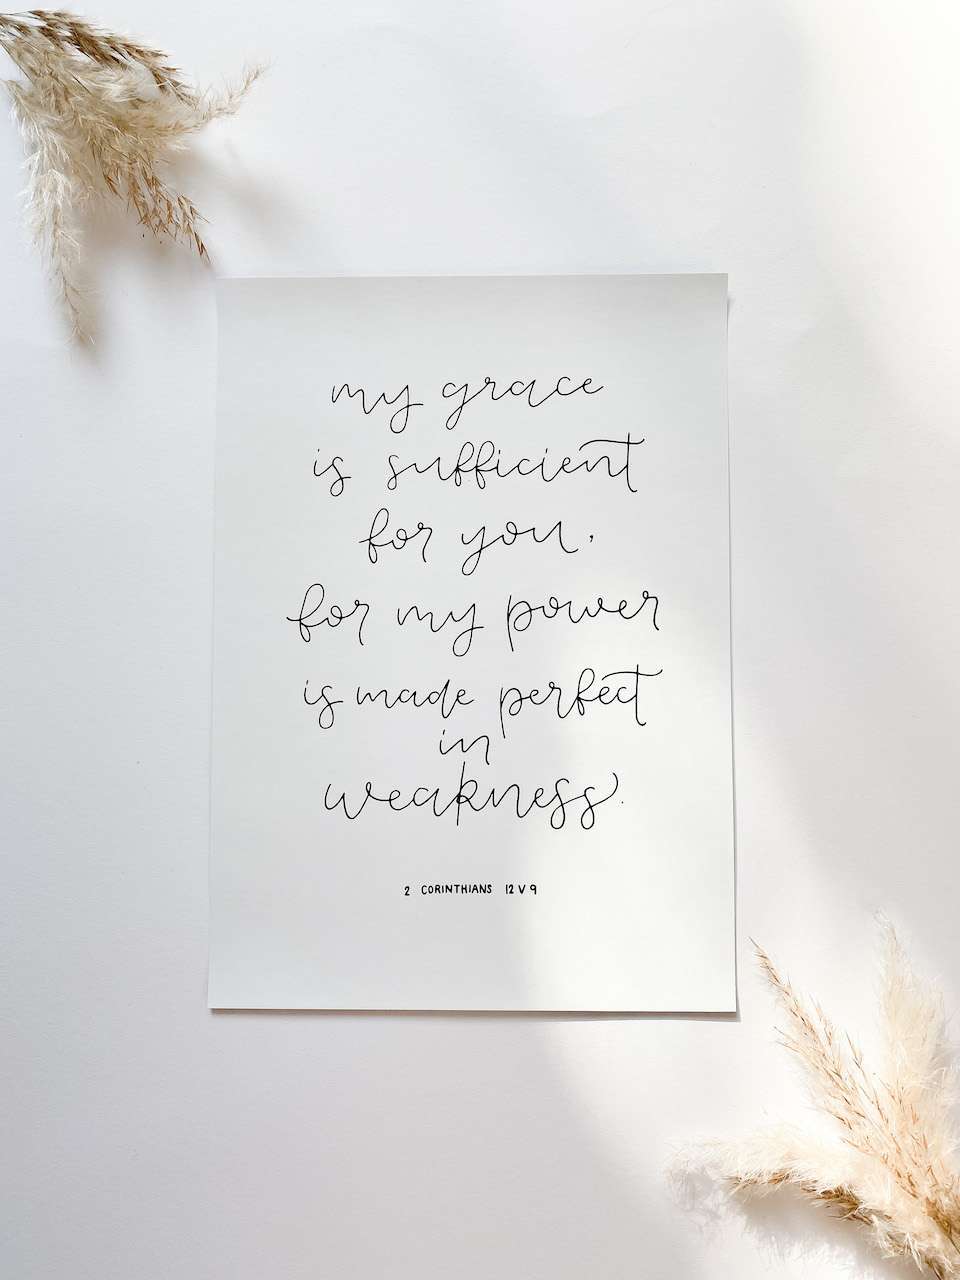 my grace
is sufficient
for you,
for my power
is made perfect
in
weakness.
2 CORINTHIANS 12 V 9